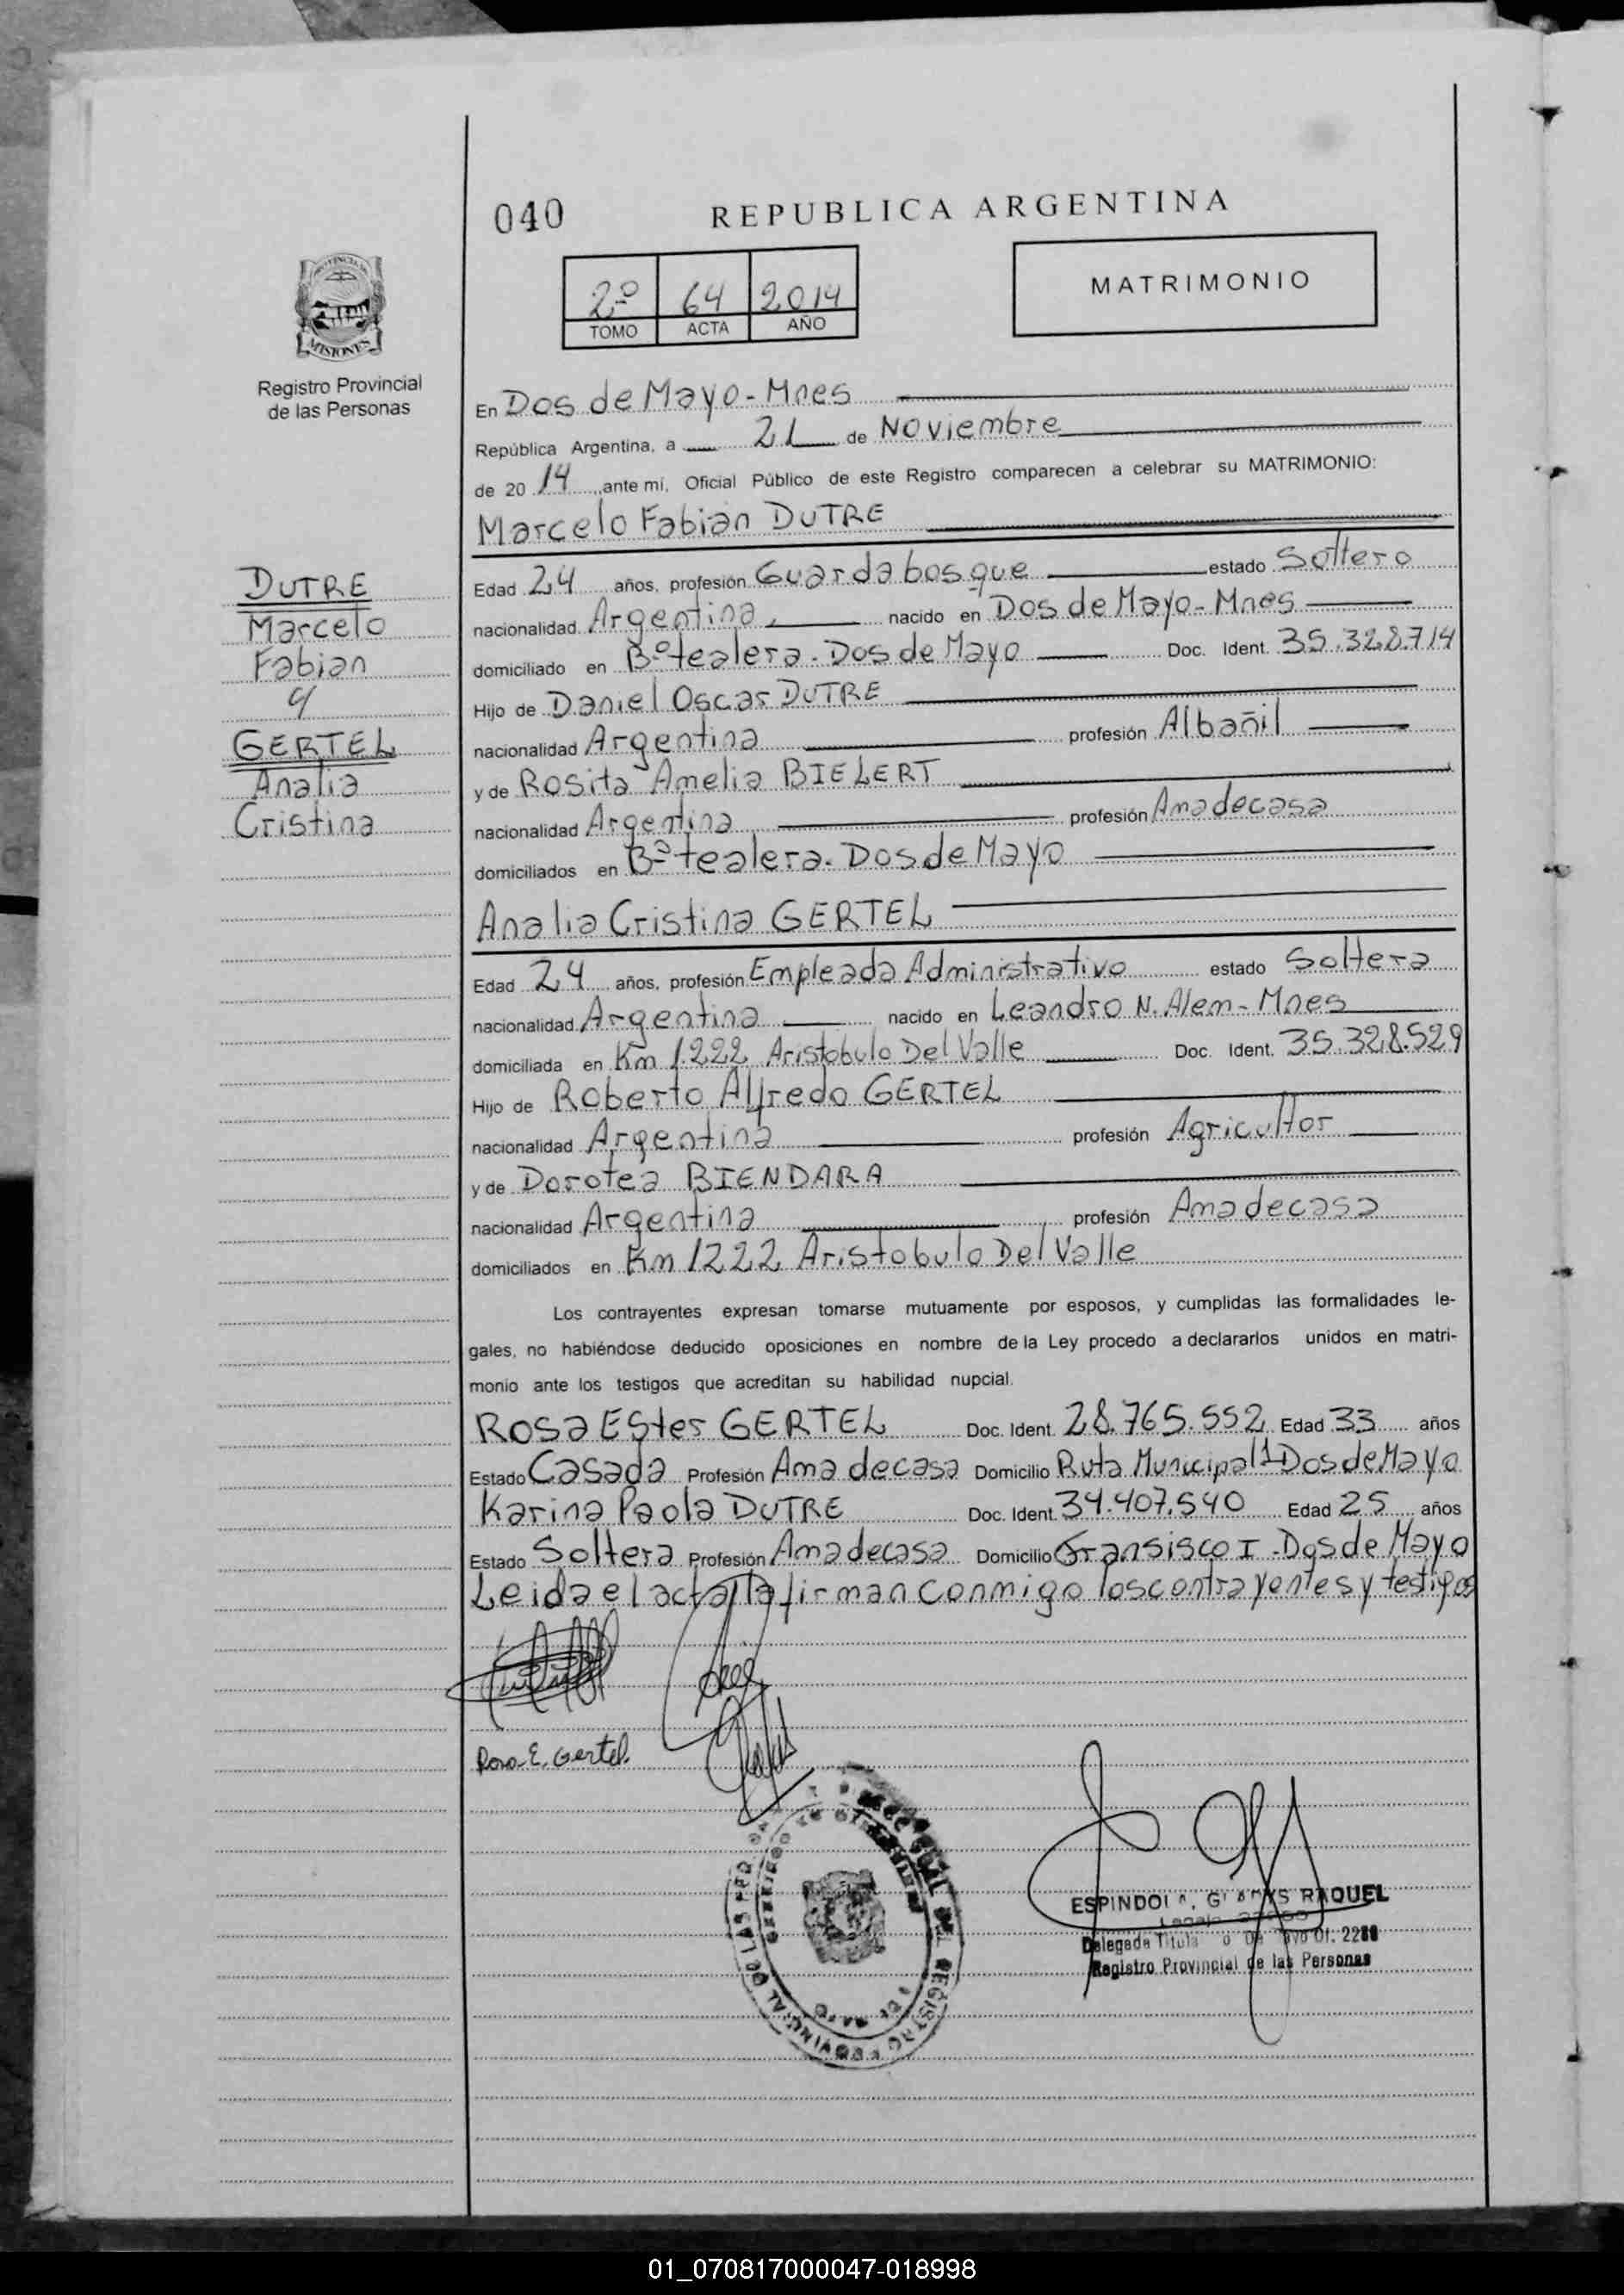 040
REPUBLICA ARGENTINA
2º 64 2014
TOMO ACTA AÑO
MATRIMONIO
PROVINCIA DE
MISIONES
Registro Provincial
de las Personas
En Dos de Mayo - Mnes
República Argentina, a 21 de Noviembre
de 2014 ante mí, Oficial Público de este Registro comparecen a celebrar su MATRIMONIO:
Marcelo Fabian DUTRE
DUTRE
Marcelo
Fabian
y
GERTEL
Analia
Cristina
Edad 24 años, profesión Guardabosque estado Soltero
nacionalidad Argentina nacido en Dos de Mayo - Mnes
domiciliado en Bº tealera. Dos de Mayo Doc. Ident. 35.328.714
Hijo de Daniel Oscar DUTRE
nacionalidad Argentina profesión Albañil
y de Rosita Amelia BIELERT
nacionalidad Argentina profesión Ama de casa
domiciliados en Bº tealera. Dos de Mayo
Analia Cristina GERTEL
Edad 24 años, profesión Empleada Administrativo estado Soltera
nacionalidad Argentina nacido en Leandro N. Alem - Mnes
domiciliada en Km 1.222 Aristobulo Del Valle Doc. Ident. 35.328.529
Hijo de Roberto Alfredo GERTEL
nacionalidad Argentina profesión Agricultor
y de Dorotea BIENDARA
nacionalidad Argentina profesión Ama de casa
domiciliados en Km 1222 Aristobulo Del Valle
Los contrayentes expresan tomarse mutuamente por esposos, y cumplidas las formalidades le-
gales, no habiéndose deducido oposiciones en nombre de la Ley procedo a declararlos unidos en matri-
monio ante los testigos que acreditan su habilidad nupcial.
Rosa Ester GERTEL Doc. Ident. 28.765.552 Edad 33 años
Estado Casada Profesión Ama de casa Domicilio Ruta Municipal 1 Dos de Mayo
Karina Paola DUTRE Doc. Ident. 34.407.540 Edad 25 años
Estado Soltera Profesión Ama de casa Domicilio Fransisco I - Dos de Mayo
Leida el acta la firman conmigo los contrayentes y testigos
Rosa E. Gertel.
ESPINDOLA, GLADYS RAQUEL
Delegada Of. 2288
Registro Provincial de las Personas
01_070817000047-018998